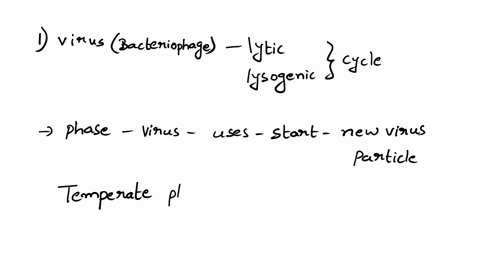 1) virus (Bacteriophage) – lytic
lysogenic } cycle
→ phase – virus – uses – start – new virus
particle
Temperate pl